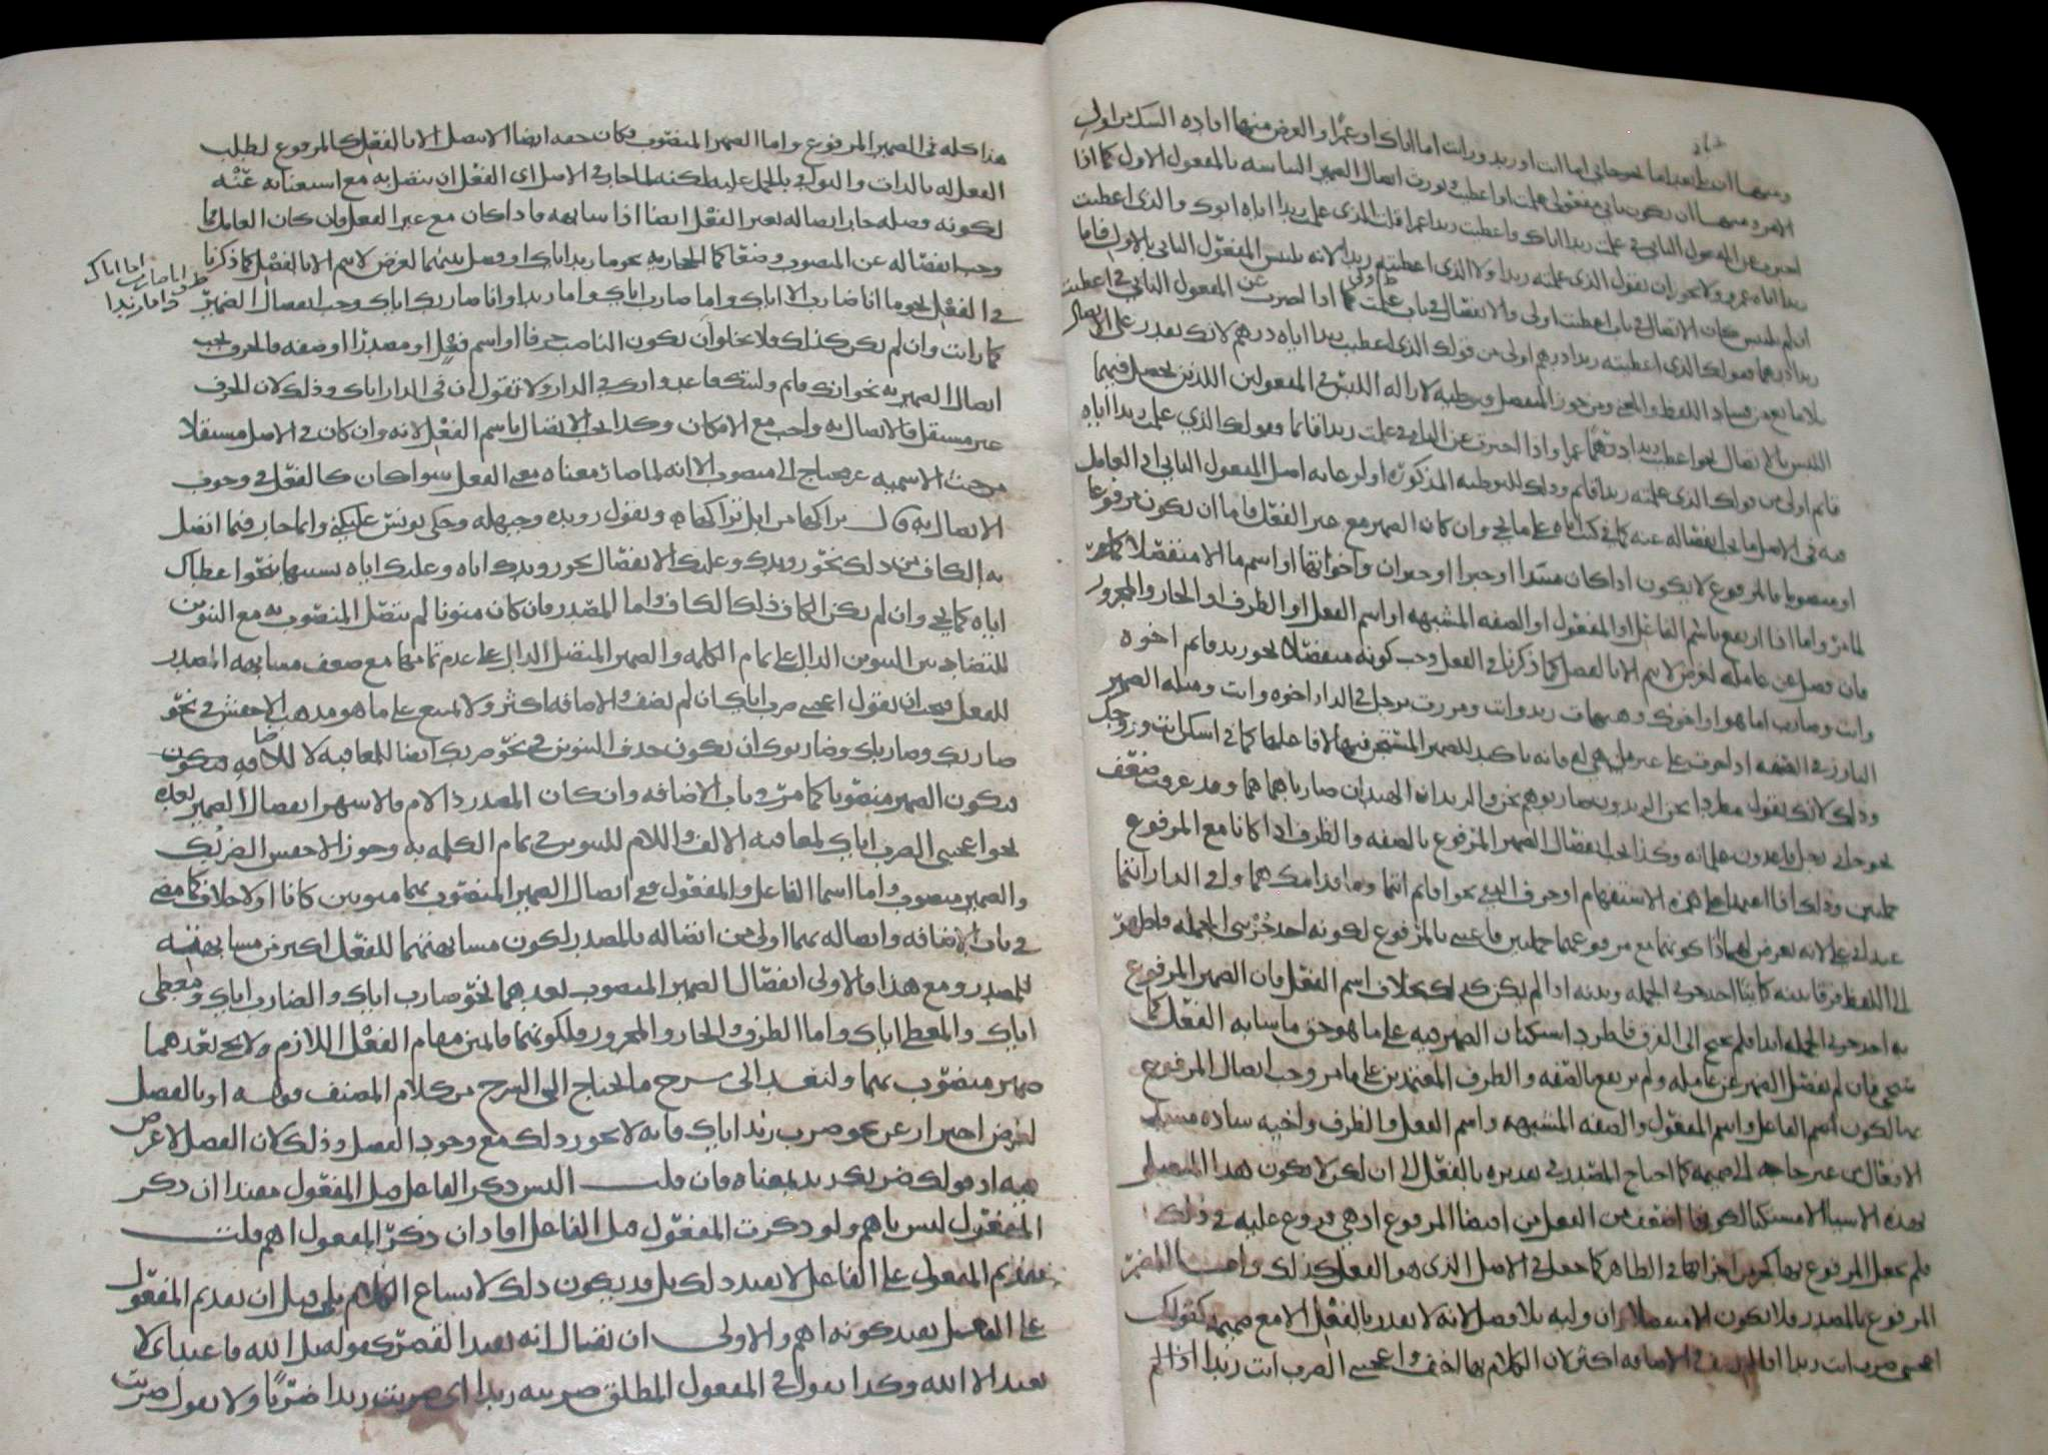 ومنها ان يكون تابعا نحو جاءني اما انت او زيد ورأيت اما اياك او عمرا والغرض منهما افادة الشك من اول
الامر ومنها ان يكون ثاني مفعولي علمت او اعطيت فيورث اتصال الضمير التباسه بالمفعول الاول كما اذا
اخبرت عن المفعول الثاني في علمت زيدا اباك واعطيت زيدا عمرا قلت الذي علمت زيدا اياه ابوك والذي اعطيت
زيدا اياه عمرو ولا يجوز ان تقول الذي علمته زيدا ولا الذي اعطيته زيدا لانه يلتبس المفعول الثاني بالاول فاما
ان لم يلتبس كان الاتصال في باب اعطيت اولى والانفصال في باب علمت كما اذا اخبرت عن المفعول الثاني في اعطيت
زيدا درهما فقولك الذي اعطيته زيدا درهم اولى من قولك الذي اعطيت زيدا اياه درهم لانك تقدر على الاتصال
بلا مانع من فساد اللفظ والمعنى ومن جوز المنفصل فتوطئة لازالة اللبس في المفعولين اللذين يحصل فيهما
اللبس بالاتصال نحو اعطيت زيدا عمرا واذا اخبرت عن الثاني في علمت زيدا قائما فقولك الذي علمت زيدا اياه
قائم اولى من قولك الذي علمته زيدا قائم وذلك للتوطئة المذكورة او لرعاية اصل المفعول الثاني اذ العامل
فيه في الاصل ما يجب انفصاله عنه كما في كنت اياه على ما يجيء وان كان الضمير مع غير الفعل فاما ان يكون مرفوعا
او منصوبا فالمرفوع لا يكون اذا كان مبتدأ او خبرا او خبر ان واخواتها او اسم ما الا منفصلا كما مر
لما مر واما اذا ارتفع باسم الفاعل او المفعول او الصفة المشبهة او اسم الفعل او الظرف او الجار والمجرور
فان فصل عن عامله لغرض لا يتم الا بالفصل كما ذكرنا في الفعل وجب كونه منفصلا نحو زيد قائم اخوه
وانت وضارب اما هو او اخوك وهيهات زيد وانت ومررت برجل في الدار اخوه وانت ومثله الضمير
البارز في الصفة اذا جرت على غير من هي له فانه تأكيد للضمير المستتر فيها لا فاعلها كما في اسكن انت وزوجك
وذلك لانك تقول مطردا نحن الزيدون ضاربوهم نحن والزيدان الهندان ضارباهما هما وقد عرفت ضعف
نحو جاءني رجل قاعدون غلمانه وكذا يجب انفصال الضمير المرفوع بالصفة والظرف اذا كانا مع المرفوع
جملتين وذلك اذا اعتمدا على همزة الاستفهام او حرف النفي نحو اقائم انتما وما قدامك هما وافي الدار انتما
عند ابي علي لانه تعرض لهما اذا كونهما مع مرفوعهما جملتين فاعتني بالمرفوع لكونه احد جزئي الجملة فاظهر
في اللفظ فرقا بينه كائنا احد جزئي الجملة وبينه اذا لم يكن كذلك بخلاف اسم الفعل فان الضمير المرفوع
به احد جزئي الجملة ابدا فلم يحتج الى الفرق فاطرد استكنان الضمير فيه على ما هو حق ما شابه الفعل كما
يجيء فان لم يفصل الضمير عن عامله ولم يرتفع بالصفة والظرف المعتمدين على ما مر وجب اتصال المرفوع
بها لكون اسم الفاعل واسم المفعول والصفة المشبهة واسم الفعل والظرف واخيه سادة مسد
الافعال من غير حاجة الى ضميمة كما احتاج المصدر في تقديره بالفعل الى ان لكن لا يكون هذا المتصل
بهذه الاشياء الا مستكنا لكونها اضعف من الفعل في اقتضاء المرفوع اذ هي فروع عليه في ذلك
فلم يجعل المرفوع بها كجزء اجزائها في الظاهر كما جعل في الاصل الذي هو الفعل كذلك واما المضمر
المرفوع بالمصدر فلا يكون الا منفصلا وان وليه بلا فصل لانه لا يقدر بالفعل الا مع ضميمة كقولك
اعجبني ضرب انت زيدا اذا لم في الاضافة اكثر لان الكلام بها اخف واعجبني الضرب انت زيدا اذا لم
هذا كله في الضمير المرفوع واما الضمير المنصوب فكان حقه ايضا ان لا يتصل الا بالفعل كالمرفوع لطلب
الفعل له بالذات والبواقي بالحمل عليه لكنه لما جاز في الاصل اي الفعل ان يتصل به مع استغنائه عنه
لكونه فضلة جاز اتصاله بغير الفعل ايضا اذا شابهه فاذا كان مع غير الفعل فان كان العامل مما
وجب انفصاله عن المنصوب وضعا كما الحجازية نحو ما زيد اياك او فصل بينهما لغرض لا يتم الا بالفصل كما ذكرنا
في الفعل نحو ما انا ضارب الا اياك واما ضارب اياك واما زيدا وانا ضاربك اياك وجب انفصال الضمير
كما رأيت وان لم يكن كذلك فلا يخلو ان يكون الناصب حرفا او اسم فعل او مصدرا او صفة فالحرف يجب
اتصال الضمير به نحو انك قائم وليتك قاعد وانك في الدار ولا تقول ان في الدار اياك وذلك لان الحرف
غير مستقل فالاتصال به واجب مع الامكان وكذا يجب الاتصال باسم الفعل لانه وان كان في الاصل مستقلا
من حيث الاسمية غير محتاج الى منصوب الا انه لما صار معناه معنى الفعل سواء كان كالفعل في وجوب
الاتصال به قال تراكها من ابل تراكها وتقول رويده وحيهله وحكى يونس عليكني وانما جاز فيما اتصل
به الكاف من ذلك نحو رويدك وعليك الانفصال نحو رويدك اياه وعليك اياه تشبيها بنحو اعطاك
اياه كما يجيء وان لم يكن الكاف في ذلك الكاف واما المصدر فان كان منونا لم يتصل المنصوب به مع التنوين
للتضاد بين التنوين الدال على تمام الكلمة والضمير المتصل الدال على عدم تمامها مع ضعف مشابهة المصدر
للفعل فيجب ان تقول اعجبني ضرب اياك ان لم تضف والاضافة اكثر ولا تمنع على ما هو مذهب الاخفش في نحو
ضاربك وضارباك وضاربوك ان يكون حذف التنوين في نحو ضربك ايضا للمعاقبة لا للاضافة فيكون
فيكون الضمير منصوبا كما مر في باب الاضافة وان كان المصدر ذا لام فالاشهر انفصال الضمير بعده
نحو اعجبني الضرب اياك لمعاقبة الالف واللام للتنوين في تمام الكلمة به وجوز الاخفش الضربك
والضمير منصوب واما اسما الفاعل والمفعول فمع اتصال الضمير المنصوب بهما منونين كانا او لا خلاف كما مضى
في باب الاضافة واتصاله بهما اولى من اتصاله بالمصدر لكون مشابهتهما للفعل اكثر من مشابهته
للمصدر ومع هذا فالاولى انفصال الضمير المنصوب بعدهما نحو ضارب اياك والضارب اياك ومعطى
اياك والمعطى اياك واما الظرف والجار والمجرور فلكونهما قائمين مقام الفعل اللازم ولا يجيء بعدهما
ضمير منصوب بهما ولنعد الى شرح ما يحتاج الى الشرح من كلام المصنف قوله او بالفصل
لغرض احتراز عن نحو ضرب زيد اياك فانه لا يجوز ذلك مع وجود الفصل وذلك لان الفصل لا غرض
فيه اذ قولك ضربك زيد بمعناه فان قلت اليس ذكر الفاعل قبل المفعول مفيدا ان ذكر
المفعول ليس باهم ولو ذكرت المفعول قبل الفاعل افاد ان ذكر المفعول اهم قلت
تقديم المفعول على الفاعل لا يفيد ذلك بل قد يكون ذلك لاتساع الكلام بلى قيل ان تقديم المفعول
على الفعل يفيد كونه اهم والاولى ان يقال انه يفيد القصر كقوله بل الله فاعبد اي لا
تعبد الا الله وكذا تقول في المفعول المطلق ضربته زيدا اي ضربت زيدا ضربا ولا تقول ضربت